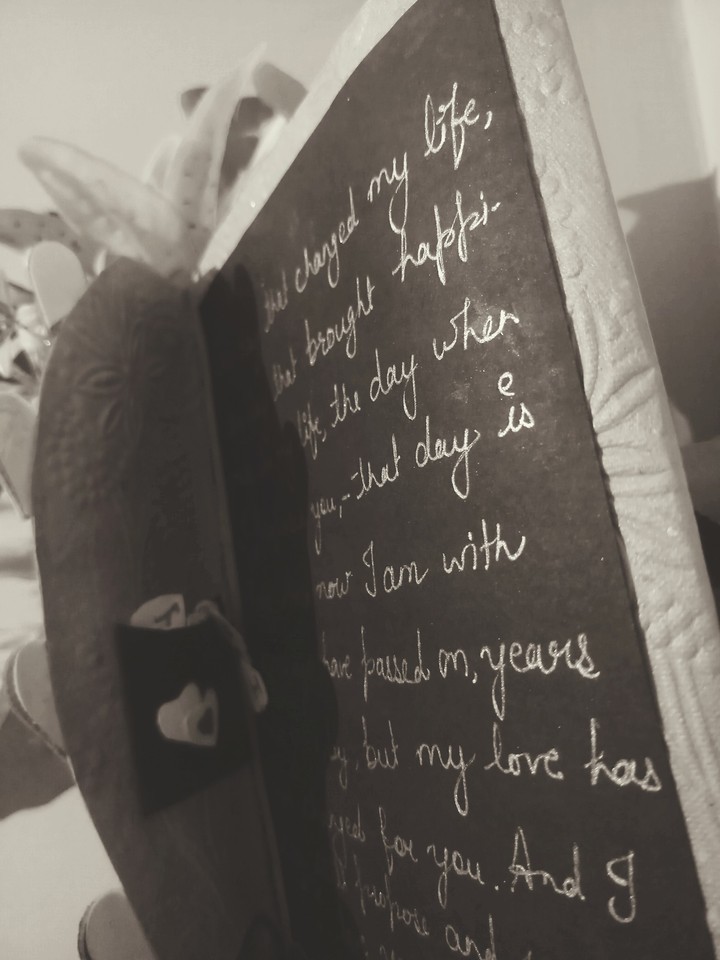 that changed my life,
that brought happi-
life, the day when
you,-that day is
now I am with
have passed on, years
but my love has
for you. And I
propose and